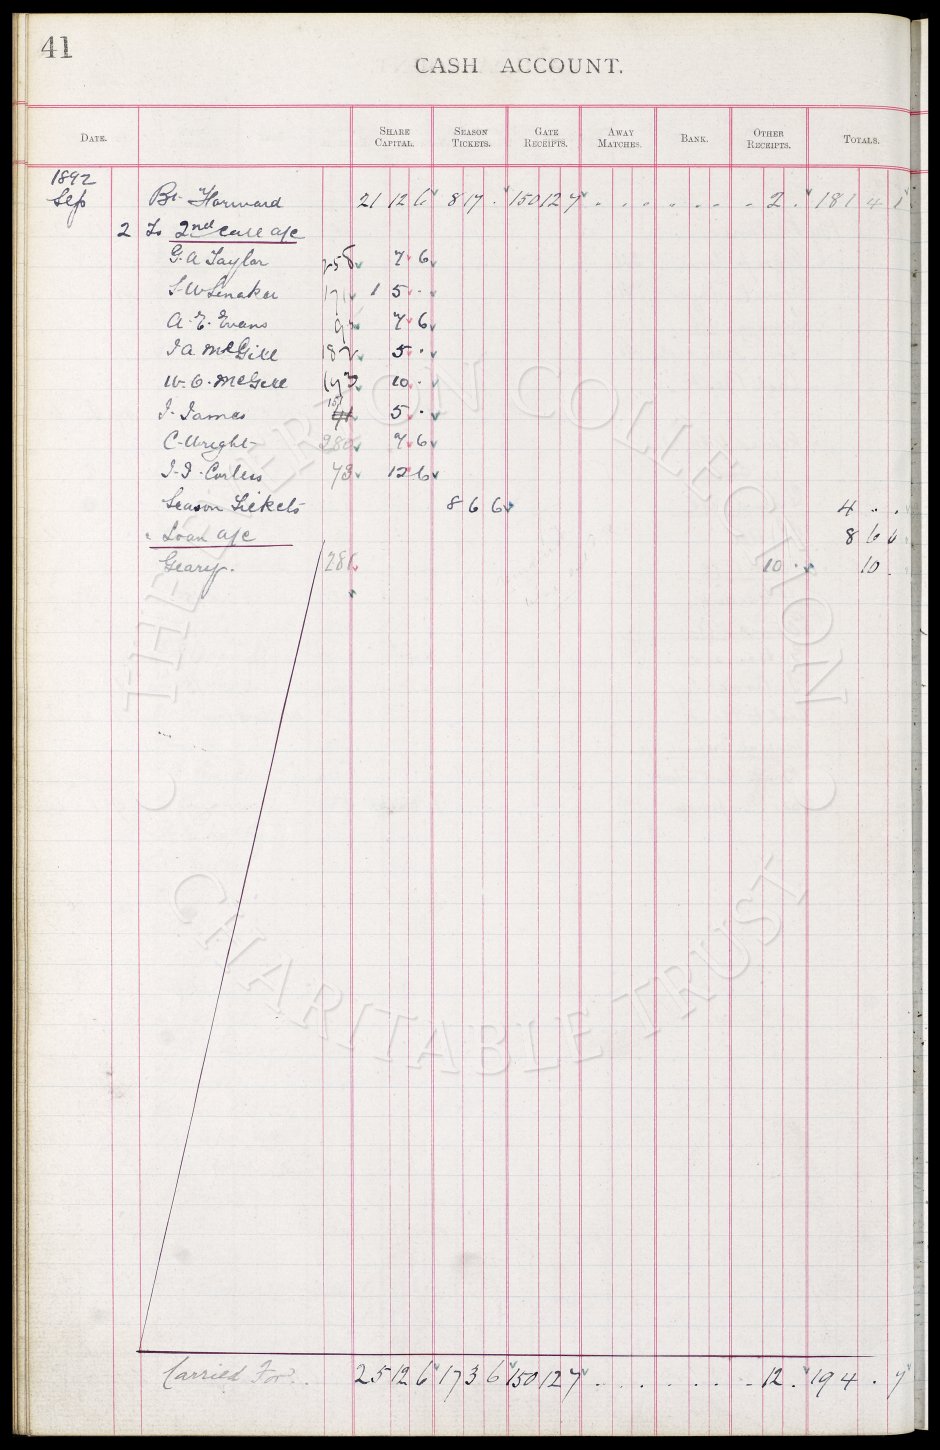 41
CASH ACCOUNT.
DATE. SHARE CAPITAL. SEASON TICKETS. GATE RECEIPTS. AWAY MATCHES. BANK. OTHER RECEIPTS. TOTALS.
1892
Sep Bt Forward 21 12 6 8 17 . 150 12 7 . . . . . . . 2 . 181 4 1
2 To 2nd Call a/c
G. A Taylor 258 7 6
171 1 5 .
A. E. Evans 92 7 6
J A McGill 182 5 .
W. O. McGill 193 10 .
J. James 5 .
C. Wright 280 7 6
J. J. Corless 73 12 6
Season Tickets 8 6 6 4 . .
" Loan a/c 8 6 6
Geary. 281 10 . 10 .
Carried For. 25 12 6 17 3 6 150 12 7 . . . . . . . 12 . 194 . 7
THE EVERTON COLLECTION
CHARITABLE TRUST